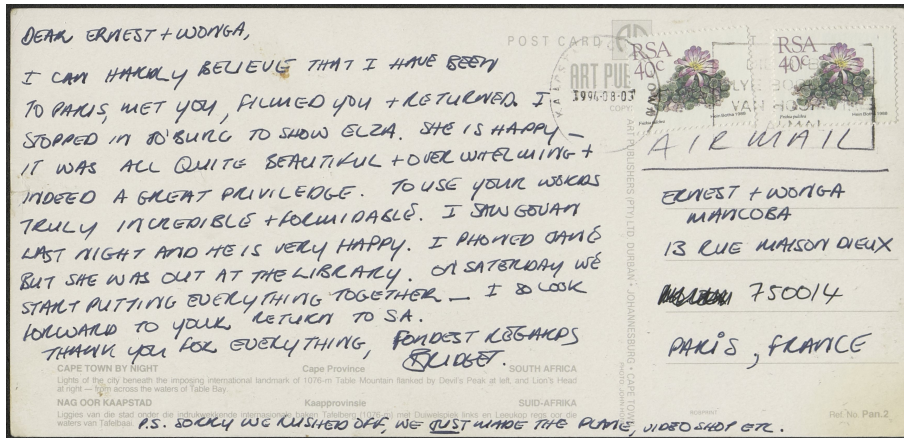 DEAR ERNEST + WONGA,
I CAN HARDLY BELIEVE THAT I HAVE BEEN
TO PARIS, MET YOU, FILMED YOU + RETURNED. I
STOPPED IN JO'BURG TO SHOW ELZA. SHE IS HAPPY —
IT WAS ALL QUITE BEAUTIFUL + OVERWHELMING +
INDEED A GREAT PRIVILEDGE. TO USE YOUR WORDS
TRULY INCREDIBLE + FORMIDABLE. I SAW GOVAN
LAST NIGHT AND HE IS VERY HAPPY. I PHONED JANE
BUT SHE WAS OUT AT THE LIBRARY. ON SATERDAY WE
START PUTTING EVERYTHING TOGETHER — I SO LOOK
FORWARD TO YOUR RETURN TO SA.
THANK YOU FOR EVERYTHING, FONDEST REGARDS
BRIDGET.
P.S. SORRY WE RUSHED OFF, WE JUST MADE THE PLANE, VIDEO SHOP ETC.
CAPE TOWN BY NIGHT Cape Province SOUTH AFRICA
Lights of the city beneath the imposing international landmark of 1076-m Table Mountain flanked by Devil's Peak at left, and Lion's Head
at right — from across the waters of Table Bay.
NAG OOR KAAPSTAD Kaapprovinsie SUID-AFRIKA
Liggies van die stad onder die indrukwekkende internasionale baken Tafelberg (1076-m) met Duiwelspiek links en Leeukop regs oor die
waters van Tafelbaai.
POST CARD
ART PUB
COPY
ART PUBLISHERS (PTY) LTD DURBAN • JOHANNESBURG • CAPE TOWN
PHOTO:
RSA
40c
RSA
40c
1994-08-03
AIR MAIL
ERNEST + WONGA
MANCOBA
13 RUE MAISON DIEUX
750014
PARIS, FRANCE
Ref. No. Pan.2